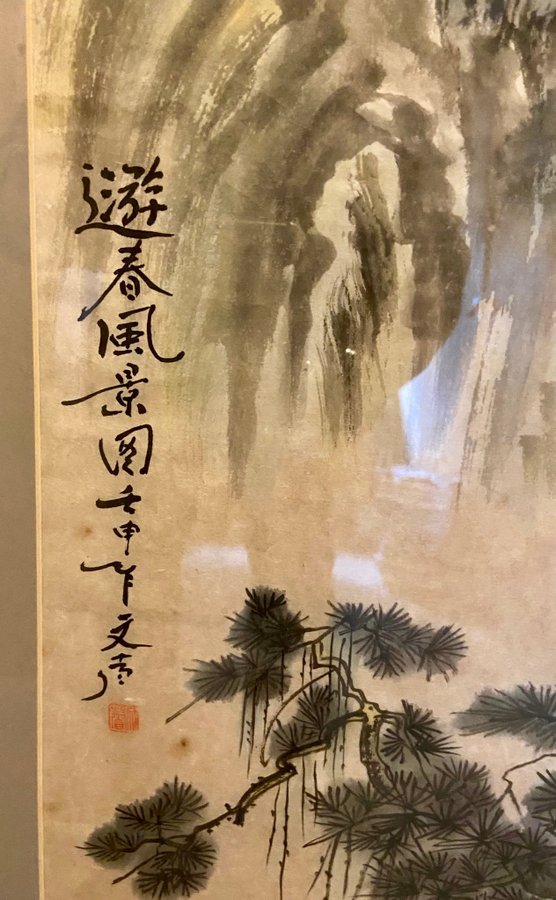 遊春風景图壬申年文